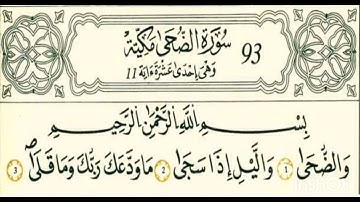 سُورَةُ الضُّحَىٰ مَكِّيَّة 93
وَهْىَ إِحْدَىٰ عَشْرَةَ ءَايَة 11
بِسْمِ اللَّهِ الرَّحْمَٰنِ الرَّحِيمِ
وَالضُّحَىٰ 1 وَالَّيْلِ إِذَا سَجَىٰ 2 مَا وَدَّعَكَ رَبُّكَ وَمَا قَلَىٰ 3